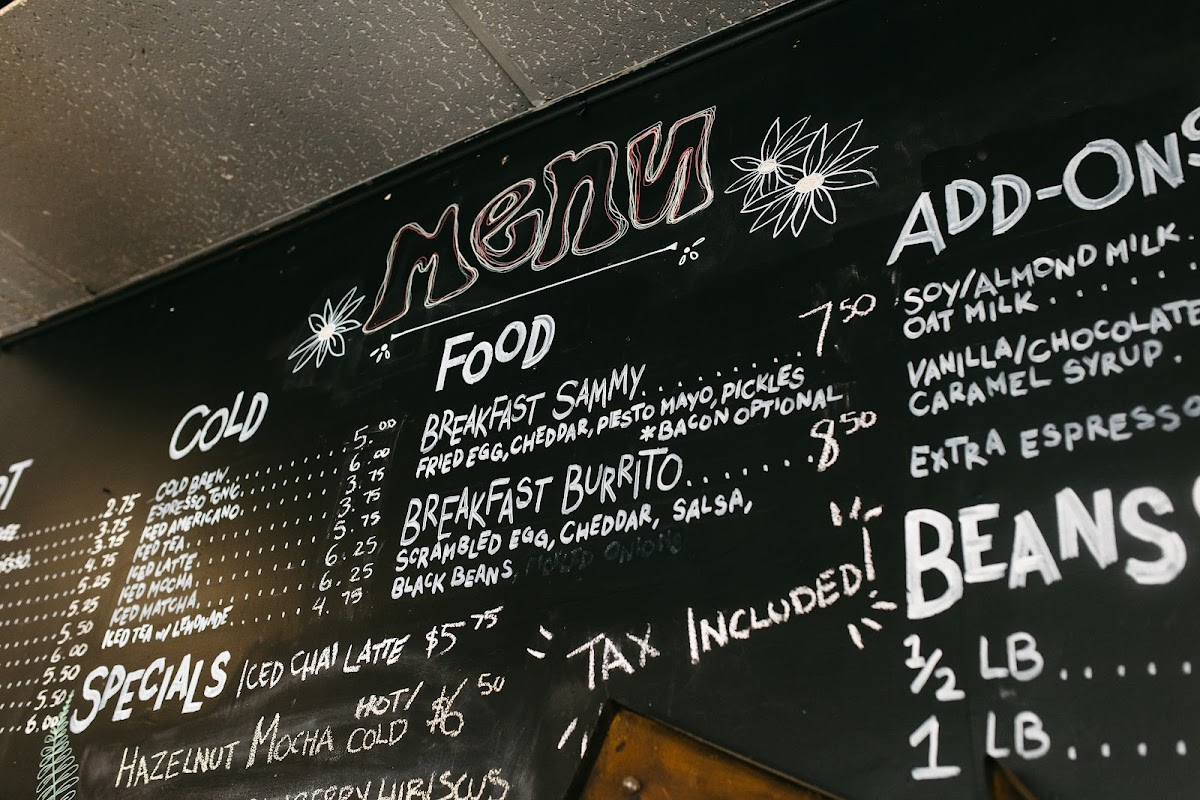 Menu
COLD
COLD BREW 5.00
ESPRESSO TONIC 6.00
ICED AMERICANO 3.75
ICED TEA 3.75
ICED LATTE 5.75
ICED MOCHA 6.25
ICED MATCHA 6.25
ICED TEA W/ LEMONADE 4.75
2.75
3.75
3.75
4.75
5.25
5.25
5.50
6.00
5.50
5.50
6.00
FOOD
BREAKFAST SAMMY 7.50
FRIED EGG, CHEDDAR, PESTO MAYO, PICKLES
*BACON OPTIONAL
BREAKFAST BURRITO 8.50
SCRAMBLED EGG, CHEDDAR, SALSA,
BLACK BEANS
SPECIALS ICED CHAI LATTE $5.75
HAZELNUT MOCHA HOT/COLD $6/6.50
HIBISCUS
TAX INCLUDED!
ADD-ONS
SOY/ALMOND MILK
OAT MILK
VANILLA/CHOCOLATE
CARAMEL SYRUP
EXTRA ESPRESSO
BEANS
1/2 LB
1 LB